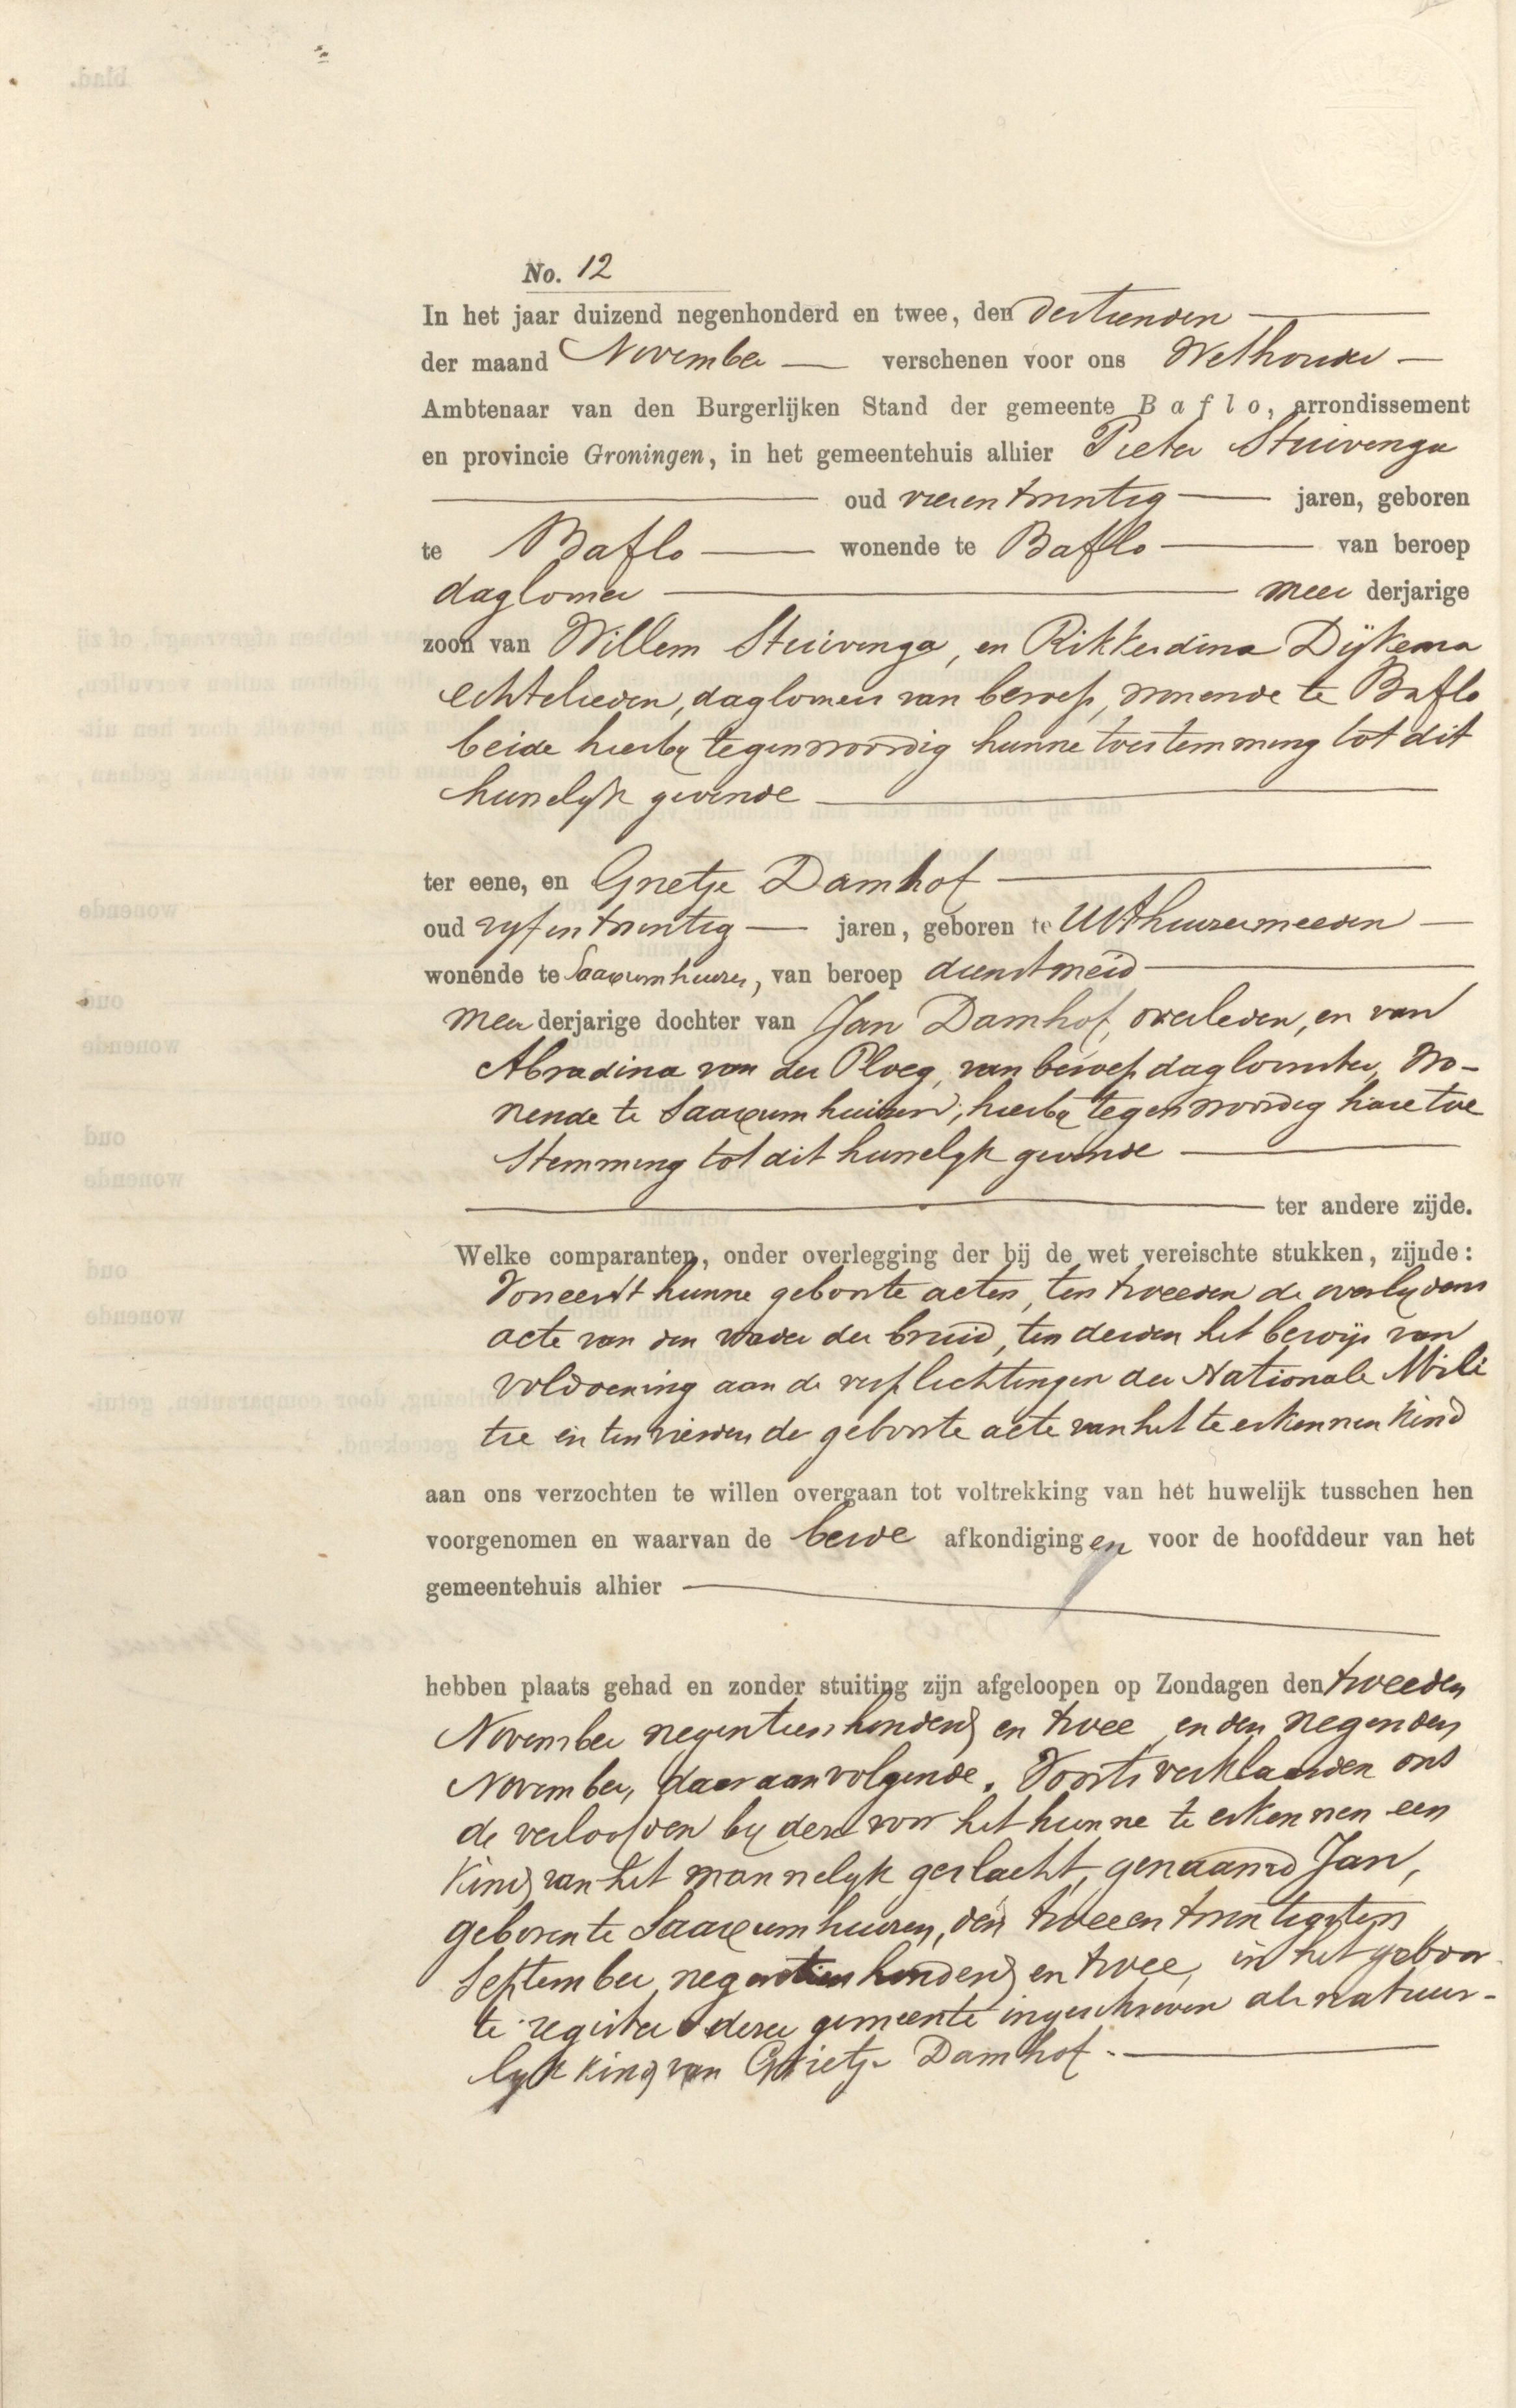 No. 12
In het jaar duizend negenhonderd en twee, den dertienden
der maand November verschenen voor ons Wethouder
Ambtenaar van den Burgerlijken Stand der gemeente Baflo, arrondissement
en provincie Groningen, in het gemeentehuis alhier Pieter Stuivenga
oud vierentwintig jaren, geboren
te Baflo wonende te Baflo van beroep
dagloner meer derjarige
zoon van Willem Stuivenga, en Rikkerdina Dijkema
echtelieden, dagloners van beroep, wonende te Baflo
beide hierbij tegenwoordig hunne toestemming tot dit
huwelijk gevende
ter eene, en Grietje Damhof
oud vijfentwintig jaren, geboren te Uithuizermeeden
wonende te Saaxumhuizen, van beroep dienstmeid
meerderjarige dochter van Jan Damhof, overleden, en van
Abradina van der Ploeg, van beroep dagloonster, wo-
nende te Saaxumhuizen, hierbij tegenwoordig hare toe
stemming tot dit huwelijk gevende
ter andere zijde.
Welke comparanten, onder overlegging der bij de wet vereischte stukken, zijnde:
Vooreerst hunne geboorte acten, ten tweeden de overlijdens
acte van den vader der bruid, ten derden het bewijs van
voldoening aan de verplichtingen der Nationale Mili
tie en ten vierden de geboorte acte van het te erkennen kind
aan ons verzochten te willen overgaan tot voltrekking van het huwelijk tusschen hen
voorgenomen en waarvan de beide afkondigingen voor de hoofddeur van het
gemeentehuis alhier
hebben plaats gehad en zonder stuiting zijn afgeloopen op Zondagen den tweeden
November negentienhonderd en twee, en den negenden
November, daaraanvolgende. Voorts verklaarden ons
de verloofden bij deze voor het hunne te erkennen een
kind van het mannelijk geslacht, genaamd Jan,
geboren te Saaxumhuizen, den tweeentwintigsten
September negentienhonderd en twee, in het geboor-
te register dezer gemeente ingeschreven als natuur-
lijk kind van Grietje Damhof.